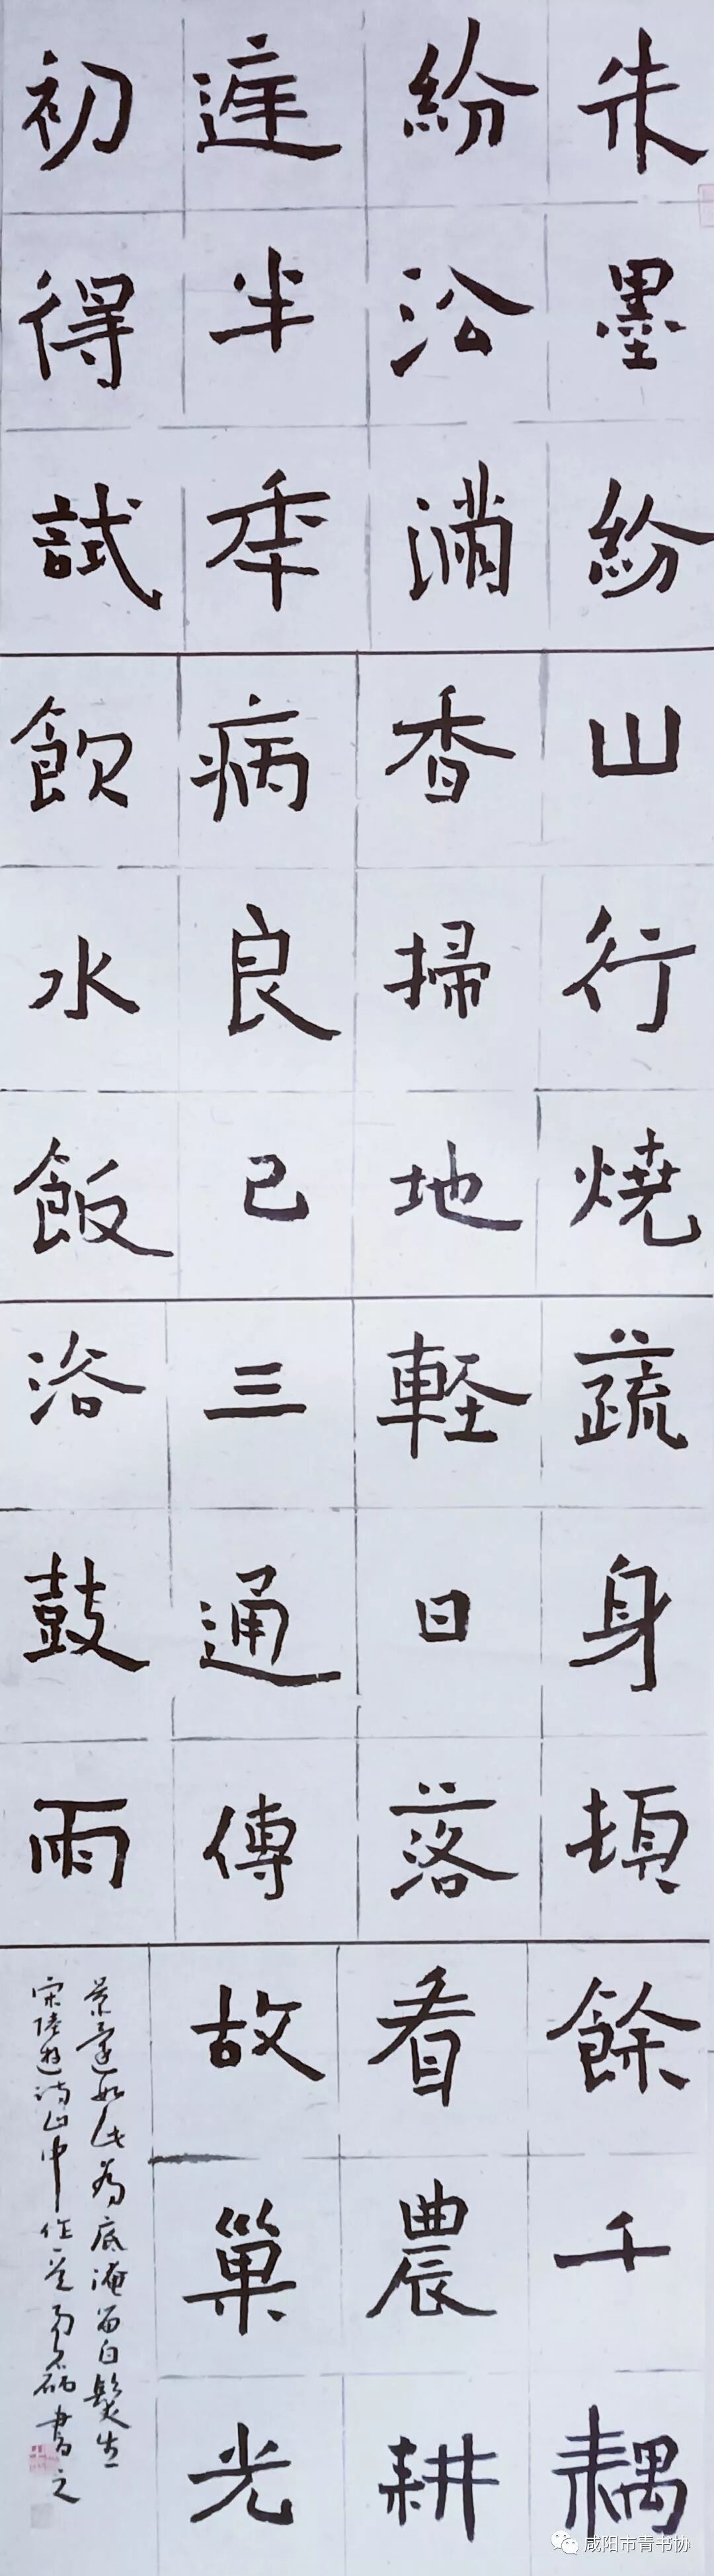 朱墨紛
紛訟滿
庭半年
初得試
山行燒
香掃地
病良已
飲水飯
蔬身頓
軽日落
三通傳
浴鼓雨
餘千耦
看農耕
故巢光
景還如此為底淹留白髮生
宋陸游詩山中作 書之
咸阳市青书协